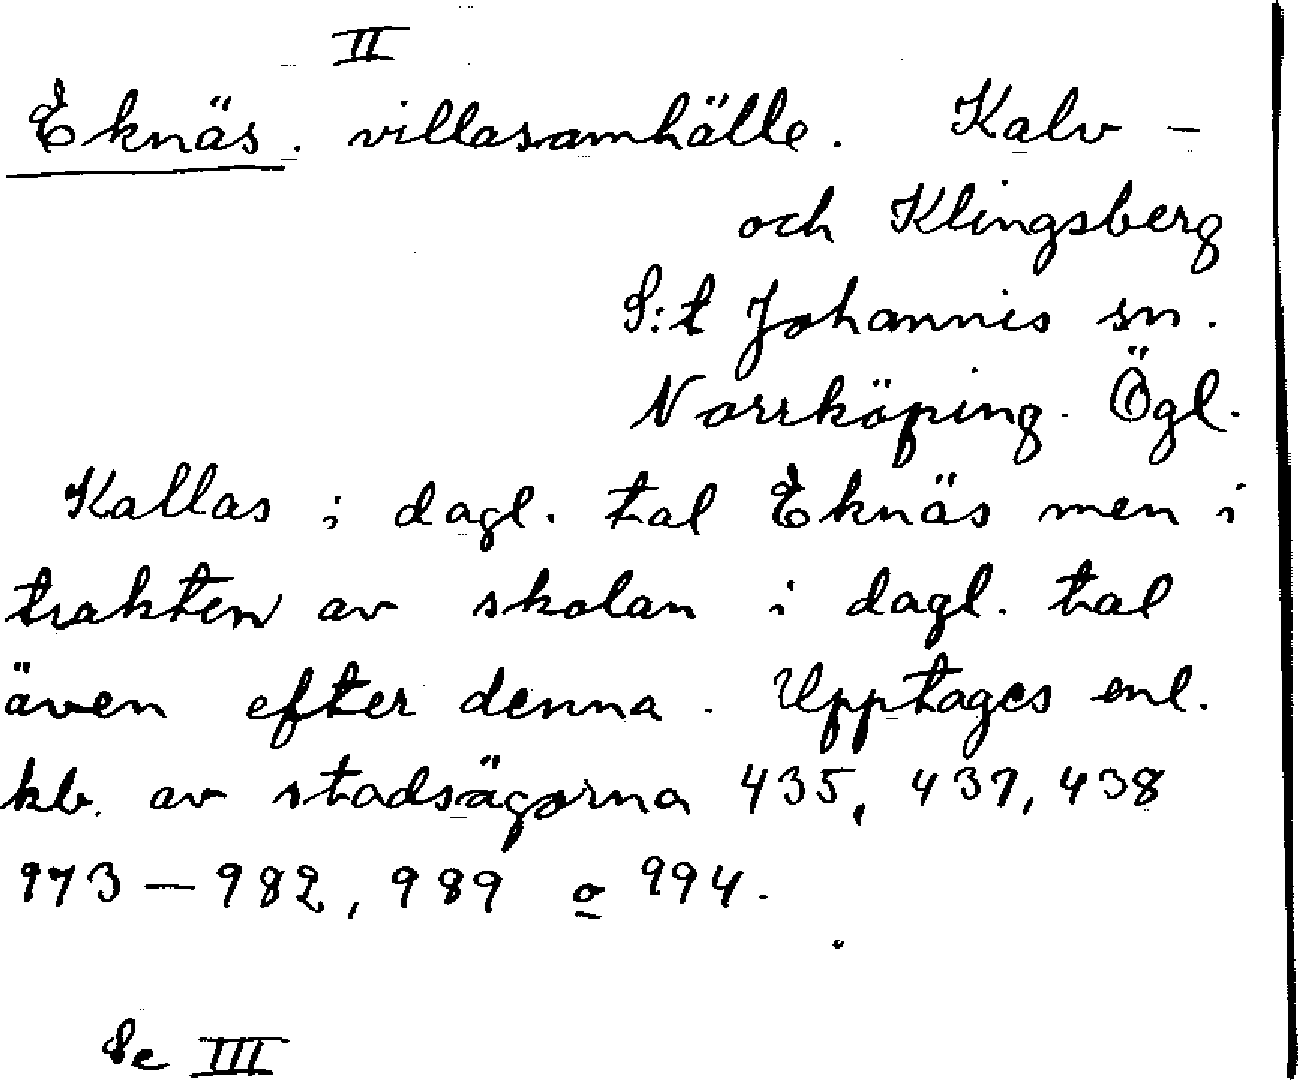 II
Eknäs. villasamhälle. Kalv -
och Klingsberg
S:t Johannis sn.
Norrköping. Ögl.
Kallas i dagl. tal Eknäs men i
trakten av skolan i dagl. tal
även efter denna. Upptages enl.
kb. av stadsägorna 435, 437, 438
973 — 982, 989 o 994.
Se III